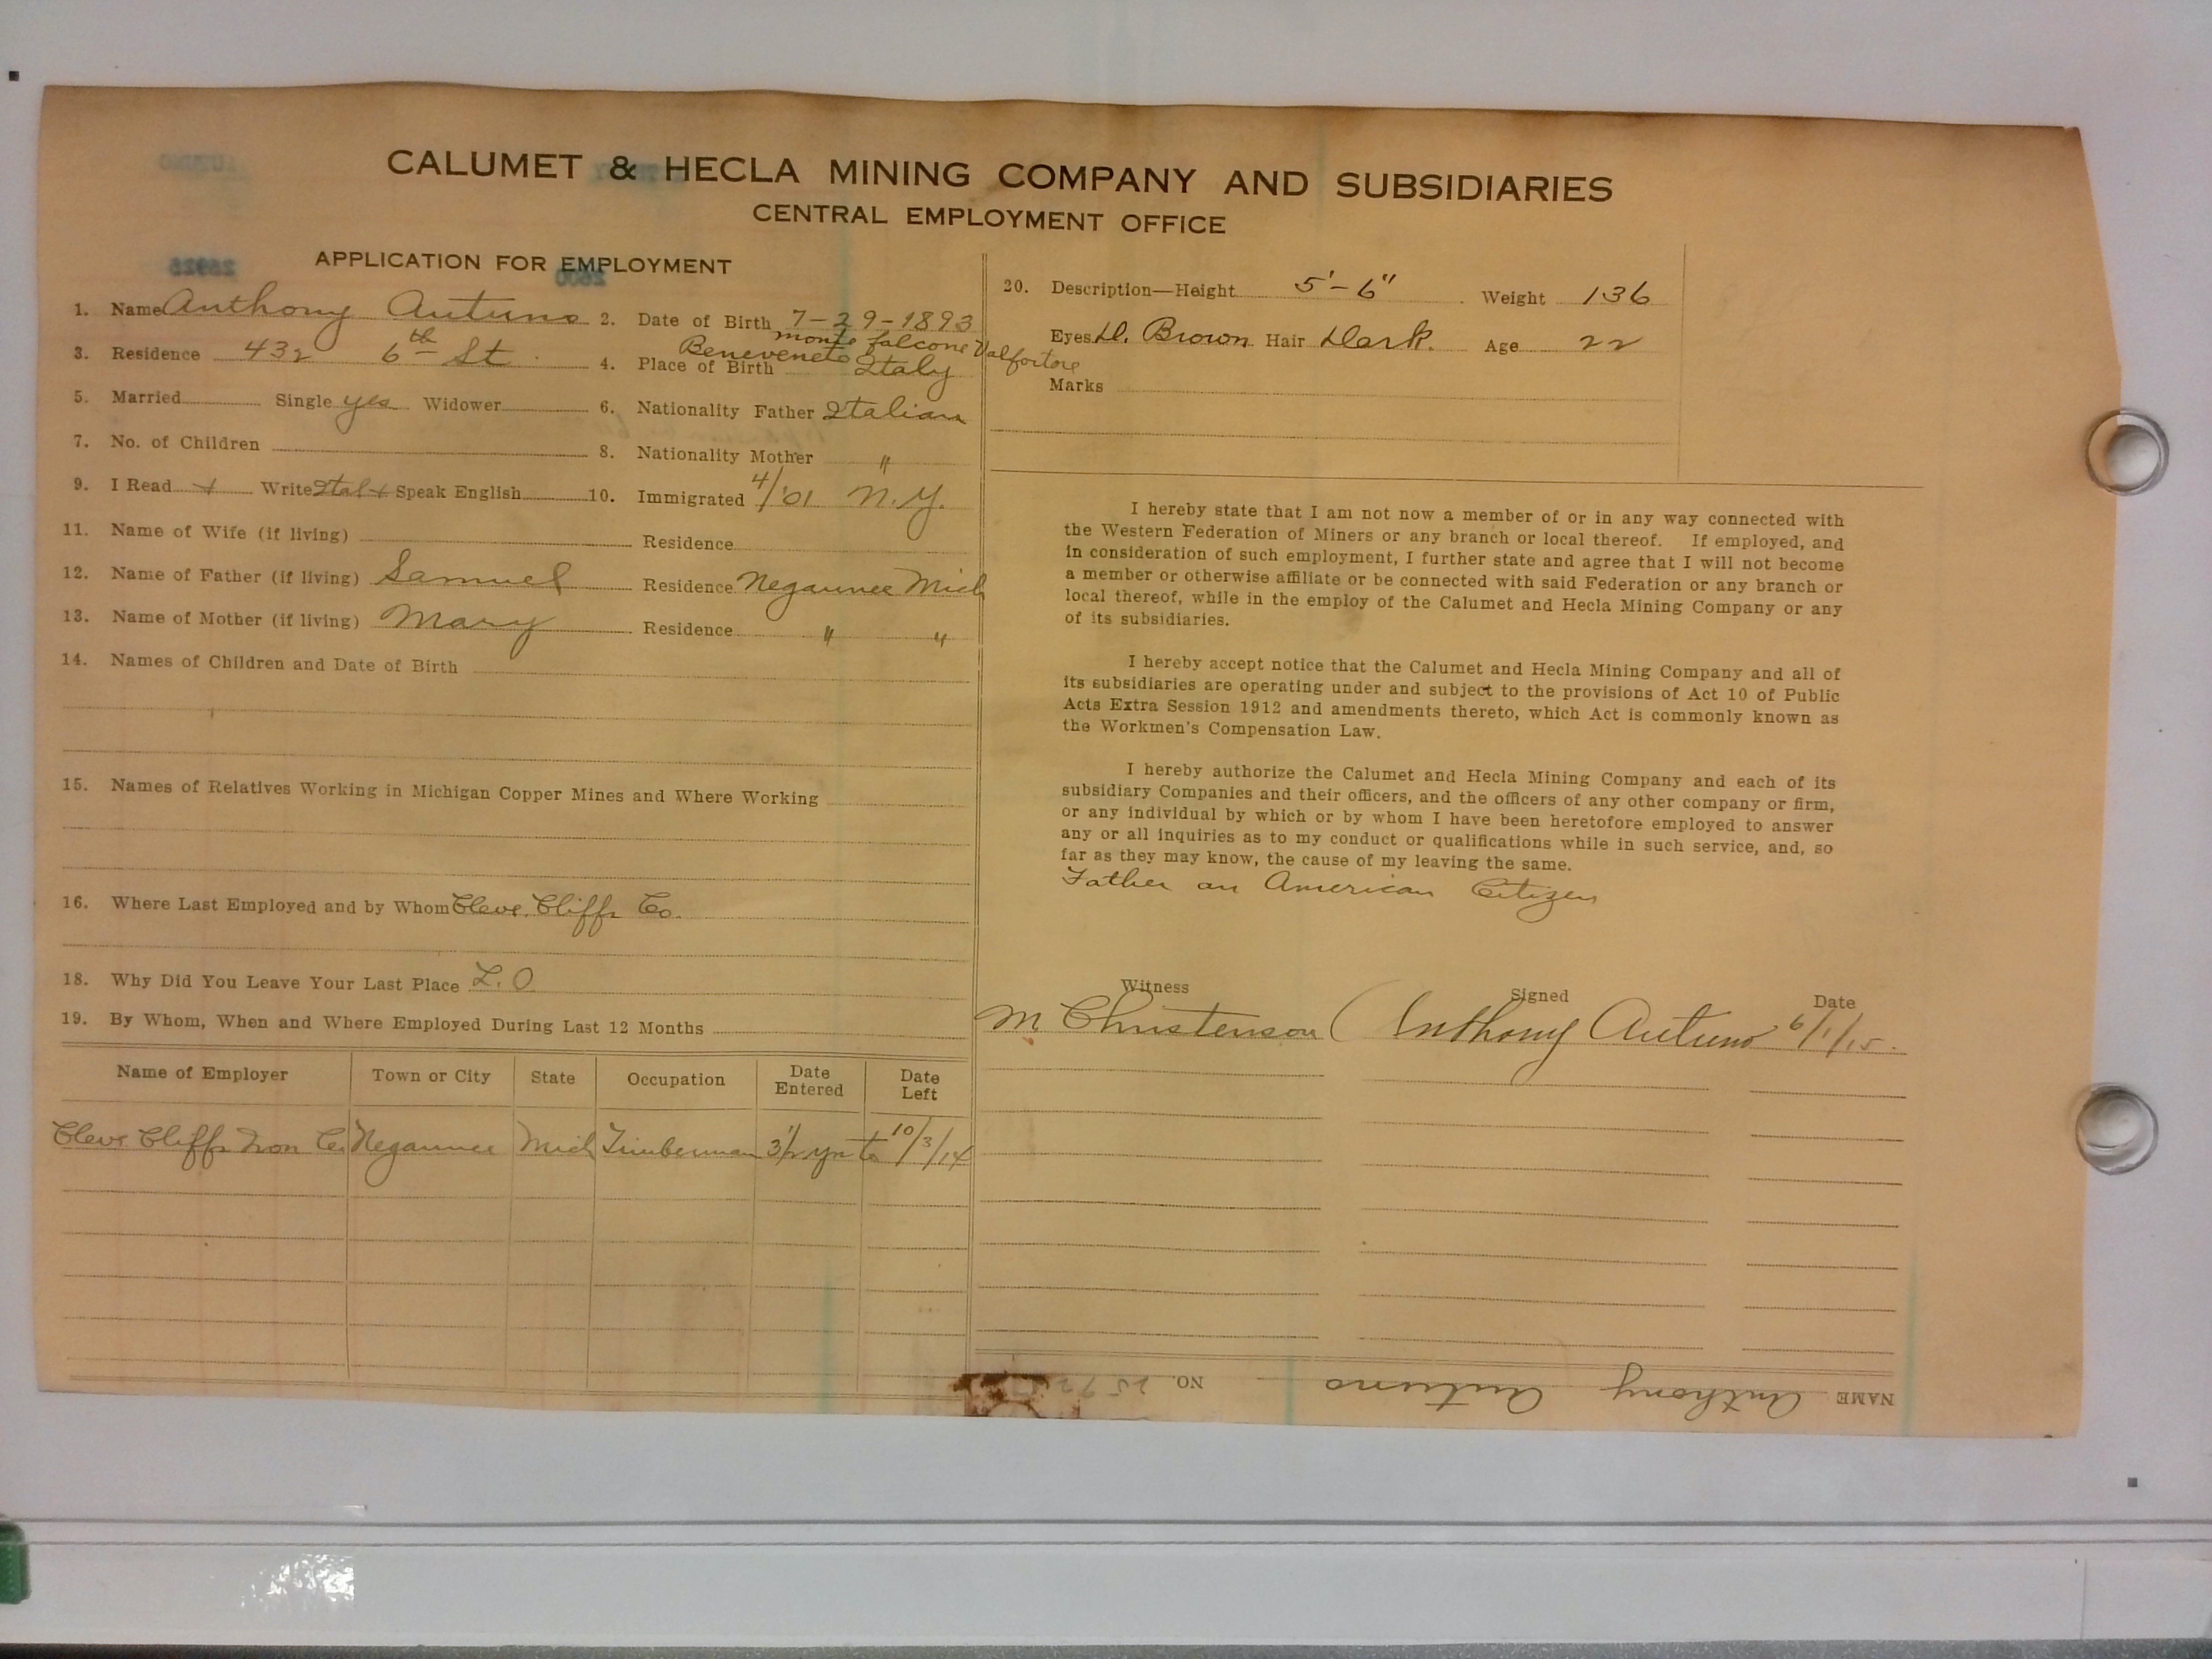 CALUMET & HECLA MINING COMPANY AND SUBSIDIARIES
CENTRAL EMPLOYMENT OFFICE
APPLICATION FOR EMPLOYMENT
1. Name Anthony Autuno 2. Date of Birth 7-29-1893
3. Residence 432 6th St. 4. Place of Birth Beneveneto Monte falcone Valfortore Italy
5. Married Single yes Widower 6. Nationality Father Italian
7. No. of Children 8. Nationality Mother "
9. I Read + Write Ital + Speak English 10. Immigrated 4/'01 N.Y.
11. Name of Wife (if living) Residence
12. Name of Father (if living) Samuel Residence Negaunee Mich
13. Name of Mother (if living) Mary Residence " "
14. Names of Children and Date of Birth
15. Names of Relatives Working in Michigan Copper Mines and Where Working
16. Where Last Employed and by Whom Cleve. Cliffs Co.
18. Why Did You Leave Your Last Place L.O
19. By Whom, When and Where Employed During Last 12 Months
Name of Employer Town or City State Occupation Date Entered Date Left
Cleve Cliffs Iron Co Negaunee Mich Timberman 3½ yrs to 10/3/14
20. Description—Height 5'-6" Weight 136
Eyes D. Brown Hair Dark. Age 22
Marks
I hereby state that I am not now a member of or in any way connected with
the Western Federation of Miners or any branch or local thereof. If employed, and
in consideration of such employment, I further state and agree that I will not become
a member or otherwise affiliate or be connected with said Federation or any branch or
local thereof, while in the employ of the Calumet and Hecla Mining Company or any
of its subsidiaries.
I hereby accept notice that the Calumet and Hecla Mining Company and all of
its subsidiaries are operating under and subject to the provisions of Act 10 of Public
Acts Extra Session 1912 and amendments thereto, which Act is commonly known as
the Workmen's Compensation Law.
I hereby authorize the Calumet and Hecla Mining Company and each of its
subsidiary Companies and their officers, and the officers of any other company or firm,
or any individual by which or by whom I have been heretofore employed to answer
any or all inquiries as to my conduct or qualifications while in such service, and, so
far as they may know, the cause of my leaving the same.
Father an American Citizen
Witness Signed Date
M Christenson Anthony Autuno 6/1/15.
NAME Anthony Autuno NO.